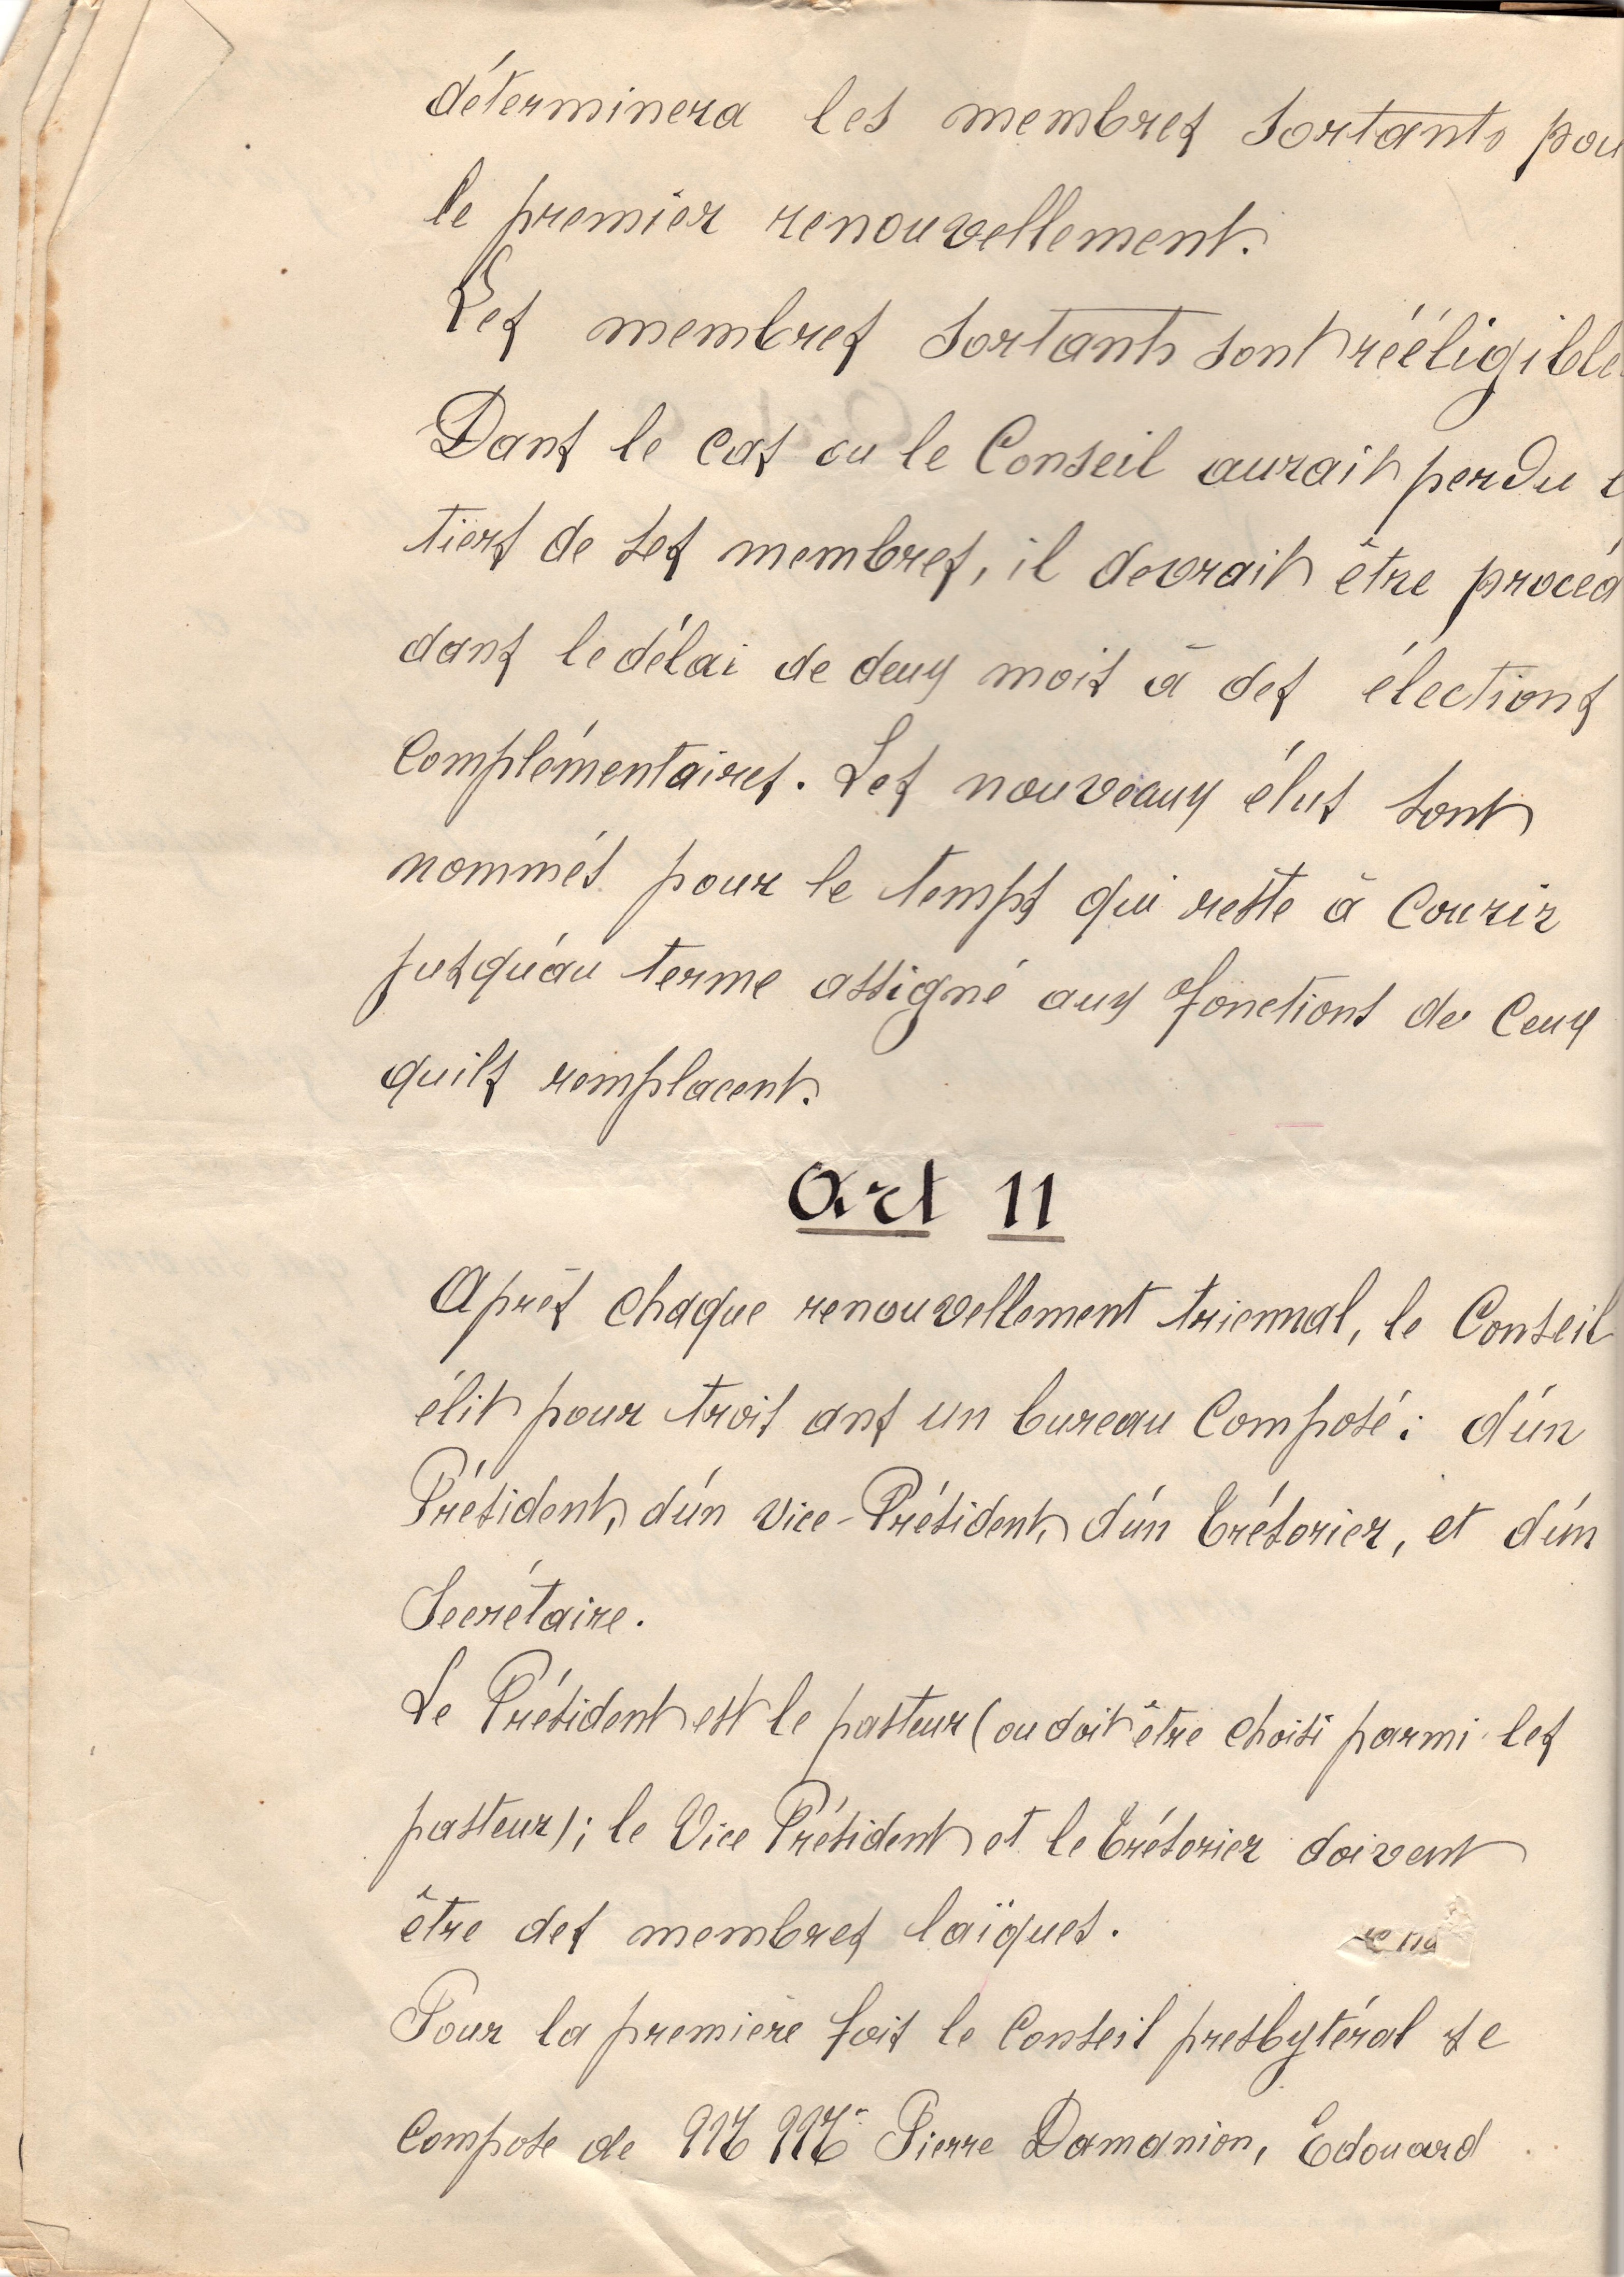 déterminera les membres sortants pou
le premier renouvellement.
Les membres sortants sont rééligible
Dans le cas ou le Conseil aurait perdu
tiers de ses membres, il devrait être procéd
dans le délai de deux mois à des élections
Complémentaires. Les nouveaux élus sont
nommés pour le temps qui reste à Courir
jusqu'au terme assigné aux fonctions de Ceux
quils remplacent.
Art 11
Après chaque renouvellement triennal, le Conseil
élit pour trois ans un bureau Composé : d'un
Président, d'un Vice-Président, d'un Trésorier, et d'un
Secrétaire.
Le Président est le pasteur (ou doit être choisi parmi les
pasteur) ; le Vice Président et le Trésorier doivent
être des membres laïques.
Pour la première fois le Conseil presbytéral se
Compose de MM. Pierre Damanion, Edouard